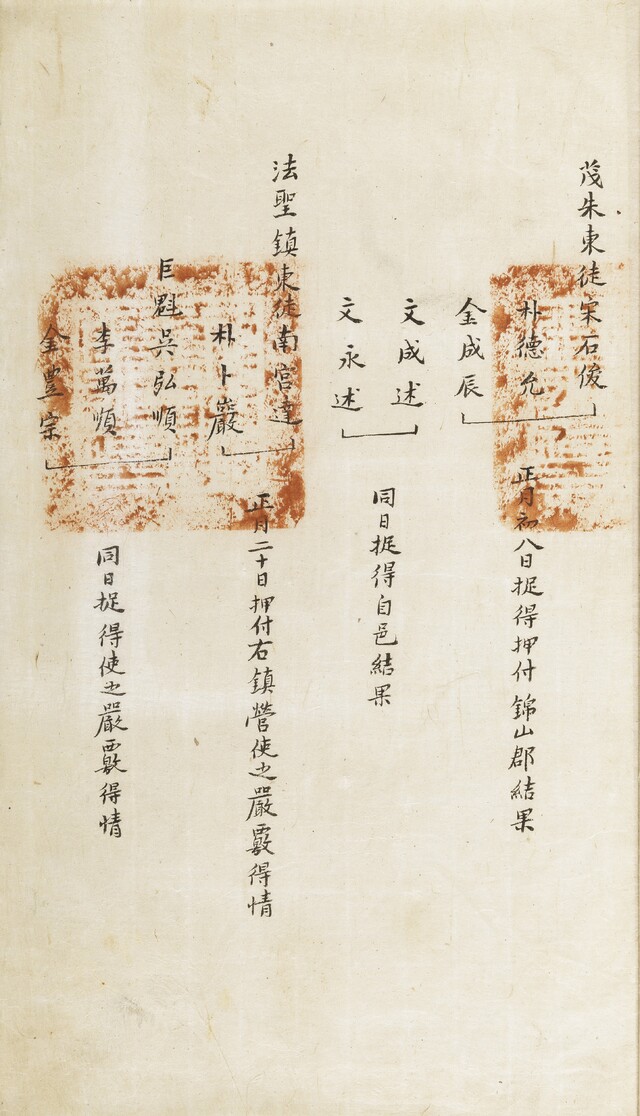 茂朱東徒宋石俊
朴德允
金成辰
正月初八日捉得押付錦山郡結果
文成述
文永述
同日捉得自邑結果
法聖鎮東徒南宮達
朴卜巖
正月二十日押付右鎮營使之嚴覈得情
巨魁吳弘順
李萬順
金豊宗
同日捉得使之嚴覈得情